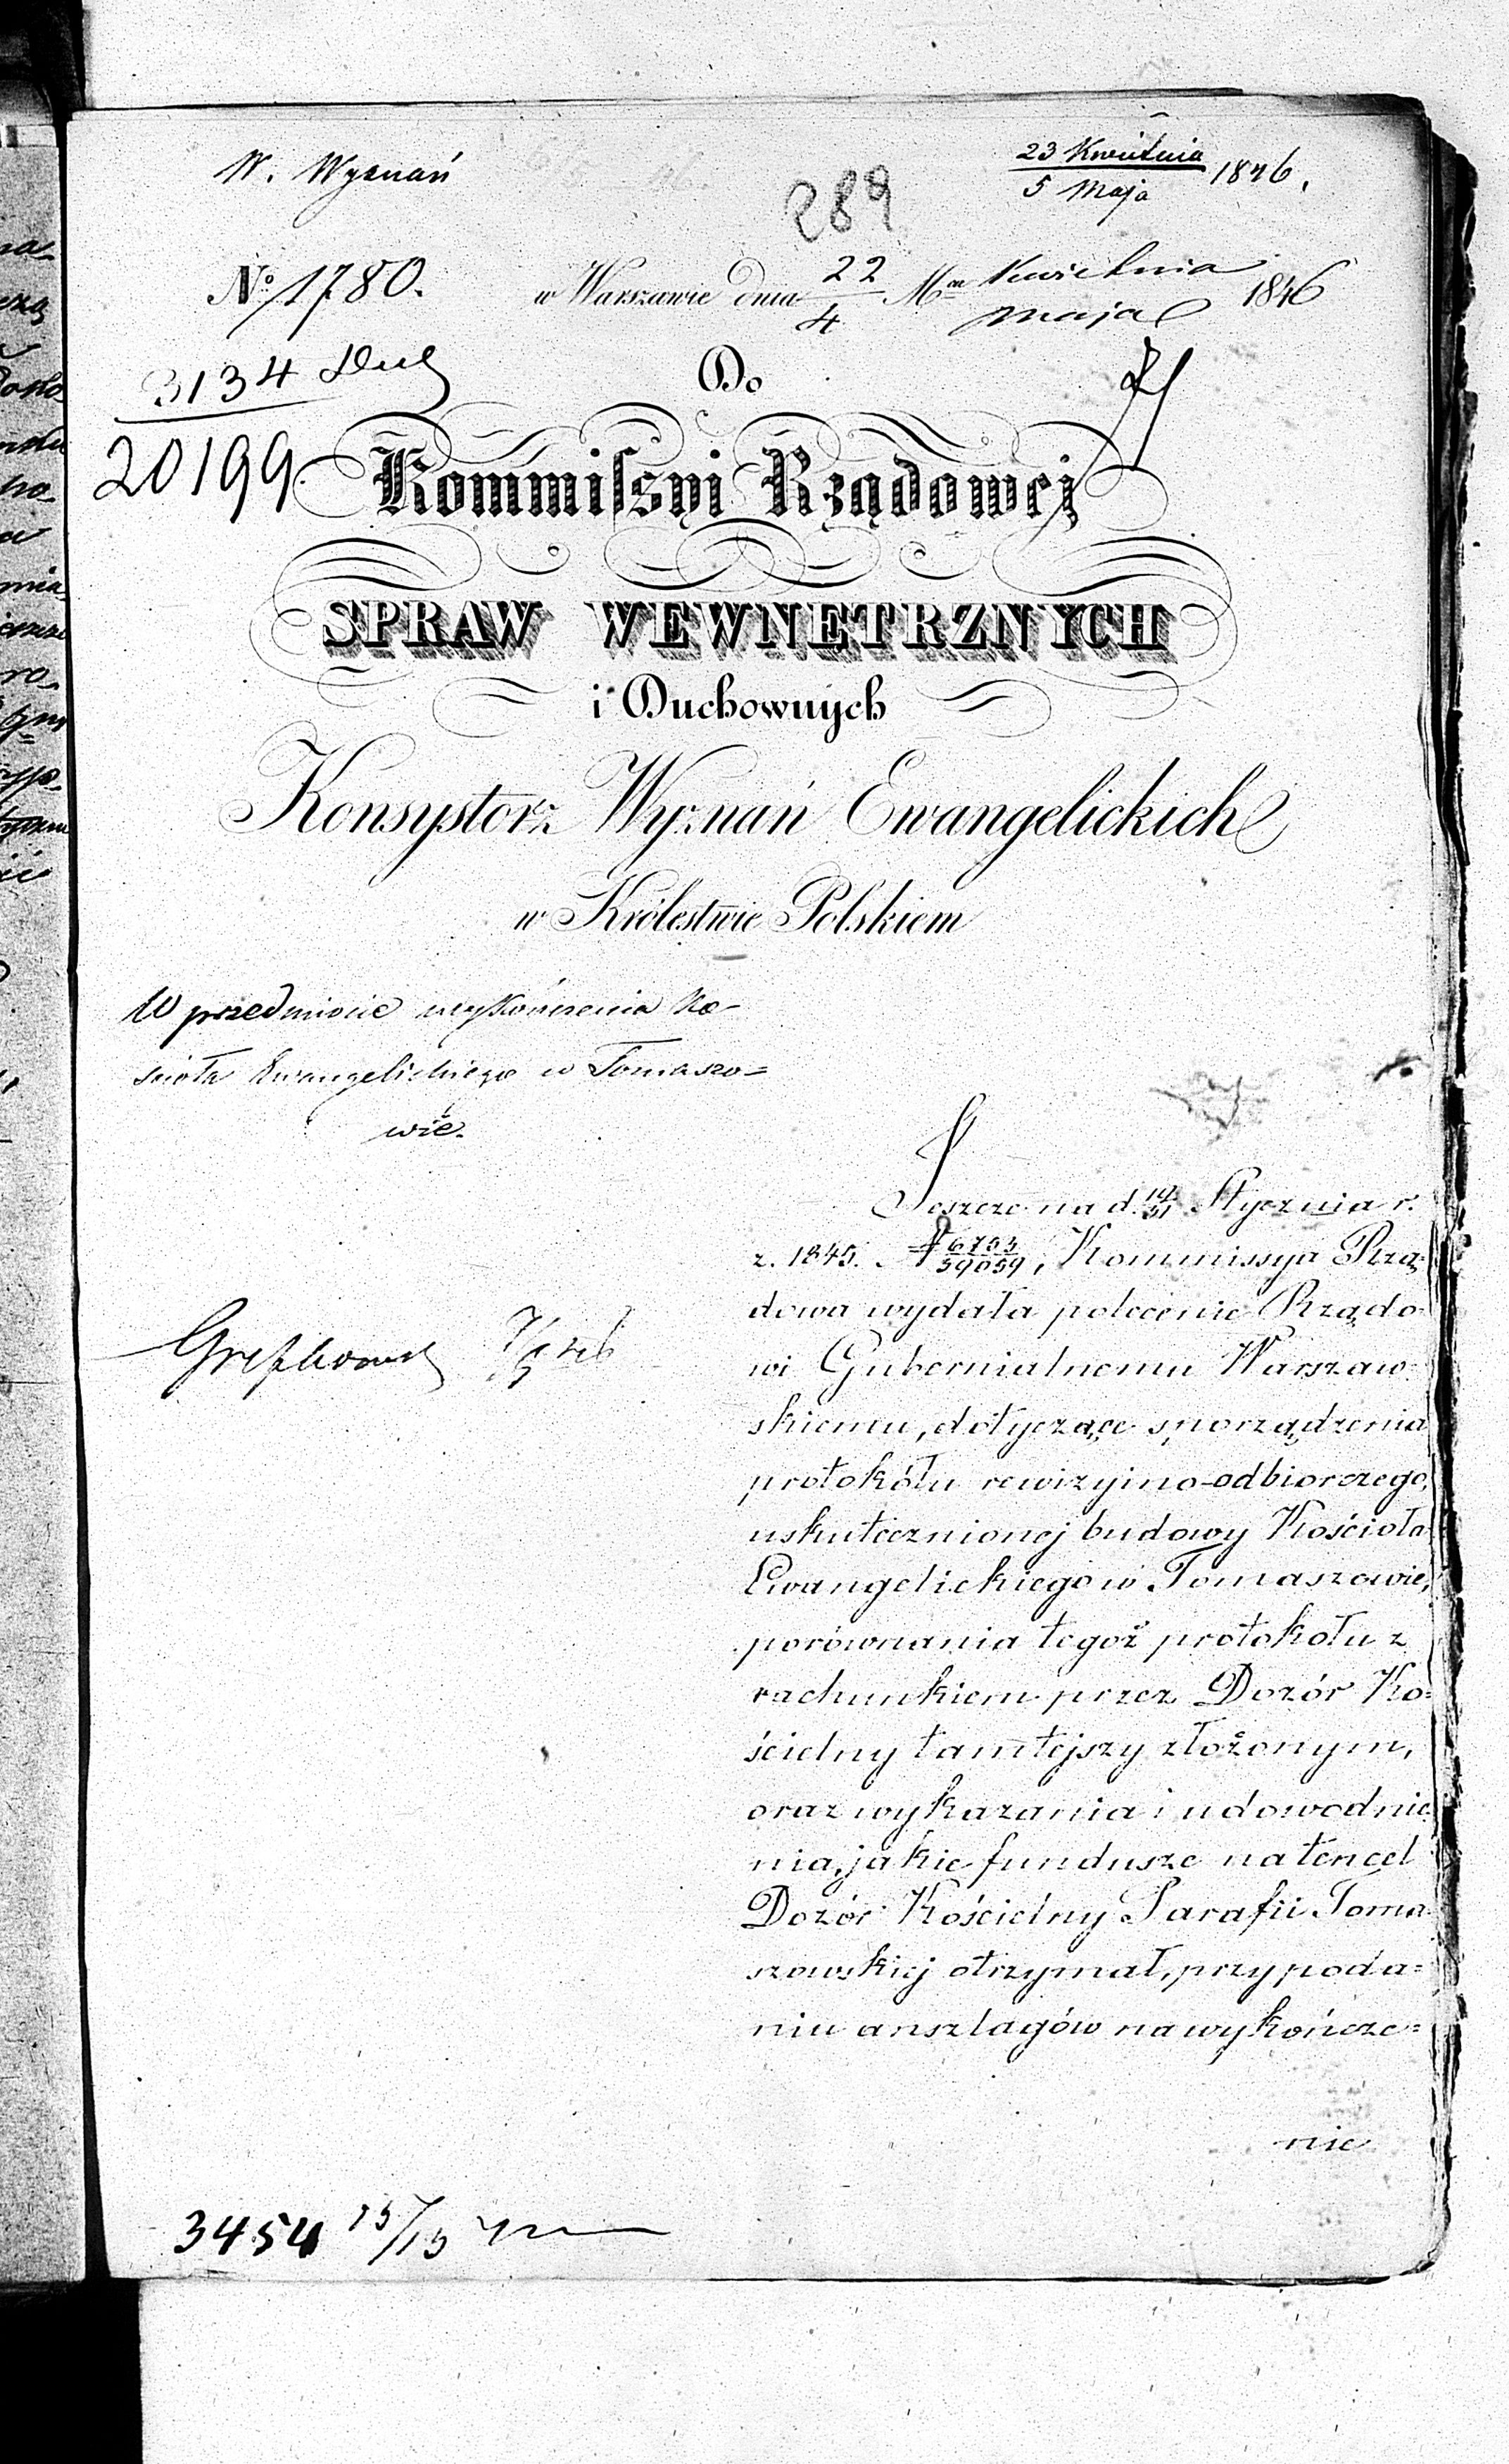 W. Wyznań
23 Kwietnia
5 Maja 1846.
289
No 1780.
w Warszawie dnia 22/4 Mca Kwietnia/Maja 1846
3134
20199
Do
Kommissyi Rządowej
SPRAW WEWNĘTRZNYCH
i Duchownych
Konsystorz Wyznań Ewangelickich
w Królestwie Polskiem
W przedmiocie wykończenia Ko-
ścioła Ewangelickiego w Tomaszo=
wie.
Jeszcze na d. Stycznia r.
z. 1845. N, Kommissya Rzą-
dowa wydała polecenie Rządo-
wi Gubernialnemu Warszaw-
skiemu, dotyczące sporządzenia
protokółu rewizyjno-odbiorczego,
uskutecznionej budowy Kościoła
Ewangelickiego w Tomaszowie,
porównania tegoż protokołu z
rachunkiem przez Dozór Ko=
ścielny tamtejszy złożonym,
oraz wykazania i udowodnie
nia, jakie fundusze na ten cel
Dozór Kościelny Parafii Toma-
szowskiej otrzymał, przy poda=
niu anszlagów na wykończe=
nie
3454 15/15